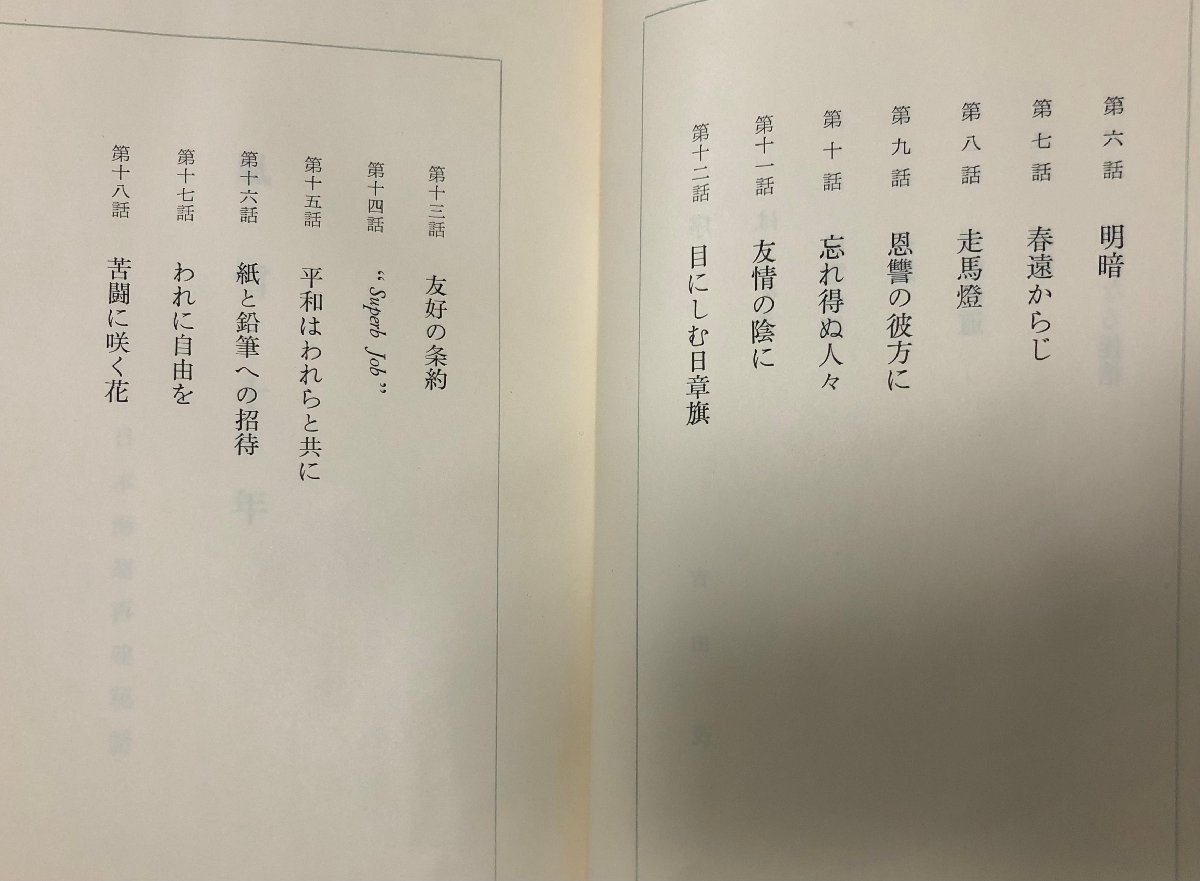 第六話 明暗
第七話 春遠からじ
第八話 走馬燈
第九話 恩讐の彼方に
第十話 忘れ得ぬ人々
第十一話 友情の陰に
第十二話 目にしむ日章旗
第十三話 友好の条約
第十四話 “Superb Job”
第十五話 平和はわれらと共に
第十六話 紙と鉛筆への招待
第十七話 われに自由を
第十八話 苦闘に咲く花